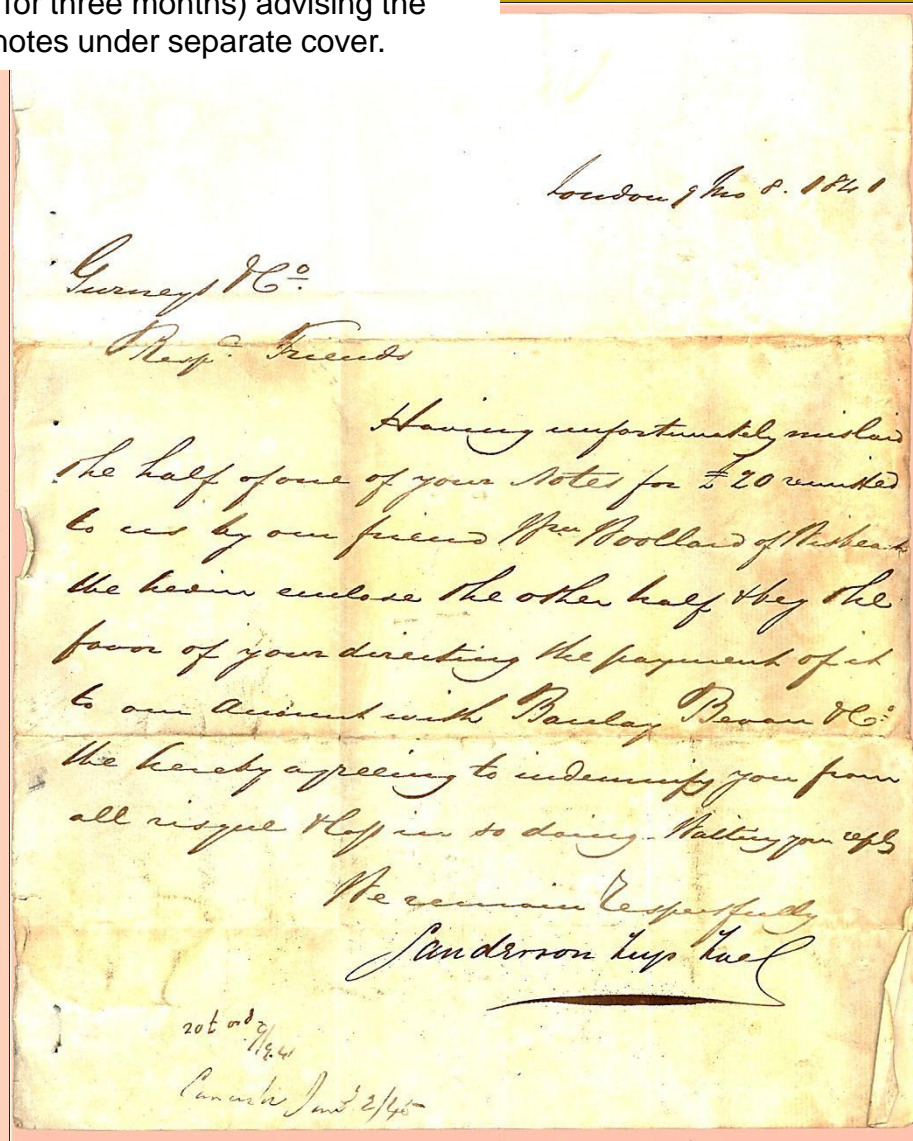 for three months) advising the
notes under separate cover.
London 9 Mo 8. 1841
Gurneys & Co.
Resp. Friends
Having unfortunately mislaid
the half of one of your Notes for £20 remitted
to us by our friend Wm Woollard of Wisbeach
We herein enclose the other half & beg the
favor of your directing the payment of it
to our Account with Barclay Bevan & Co:
We hereby agreeing to indemnify you from
all risque & loss in so doing. Waiting your reply
We remain Respectfully
Sanderson